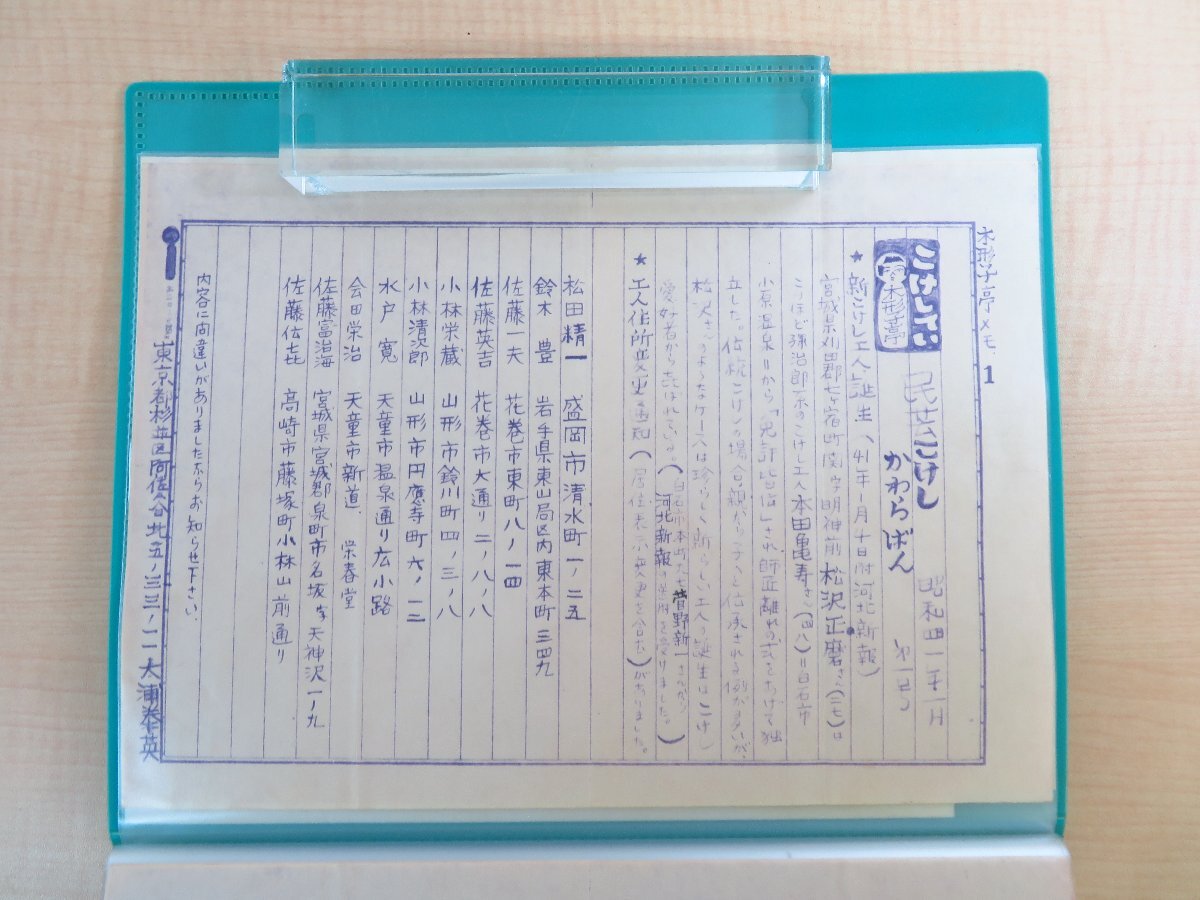 木形子亭メモ 1
こけしで
木形子亭
民芸こけし
かわらばん
昭和四一年一月
★新こけし工人誕生(41年1月十日附河北新報)
宮城県刈田郡七ヶ宿町関字明神前 松沢正磨さん(二七)は
このほど弥治郎系のこけし工人本田亀寿さん(四八)=白石市
小原温泉=から「免許皆伝」され師匠離れの式をあげて独
立した。伝統こけしの場合親から子へと伝承される例が多いが、
松沢さんのようなケースは珍らしく新らしい工人の誕生はこけし
愛好者から喜ばれている。(白石市本町 菅野新一さんから
河北新報の 受けました。)
★工人住所変更通知(居住表示変更を含む)がありました。
松田精一 盛岡市清水町一ノ二五
鈴木 豊 岩手県東山局区内東本町三四九
佐藤一夫 花巻市東町八ノ一四
佐藤英吉 花巻市大通り二ノ八ノ八
小林栄蔵 山形市鈴川町四ノ三ノ八
小林清次郎 山形市円應寺町六ノ一二
水戸 寛 天童市温泉通り広小路
会田栄治 天童市新道 栄春堂
佐藤富治海 宮城県宮城郡泉町市名坂字天神沢一ノ九
佐藤伝喜 高崎市藤塚町小林山前通り
内容に間違いがありましたらお知らせ下さい。
東京都杉並区阿佐谷北五ノ三三ノ二一 大浦泰英